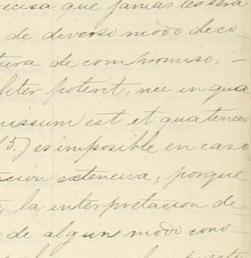 recisa que jamas les sera
de diverso modo de co-
tura de compromiso, –
biter poterit, nec in qua
missum est et quatenus
(5.) es imposible en caso
sicion extensiva, porque
, la interpretacion de
de algun modo cono-